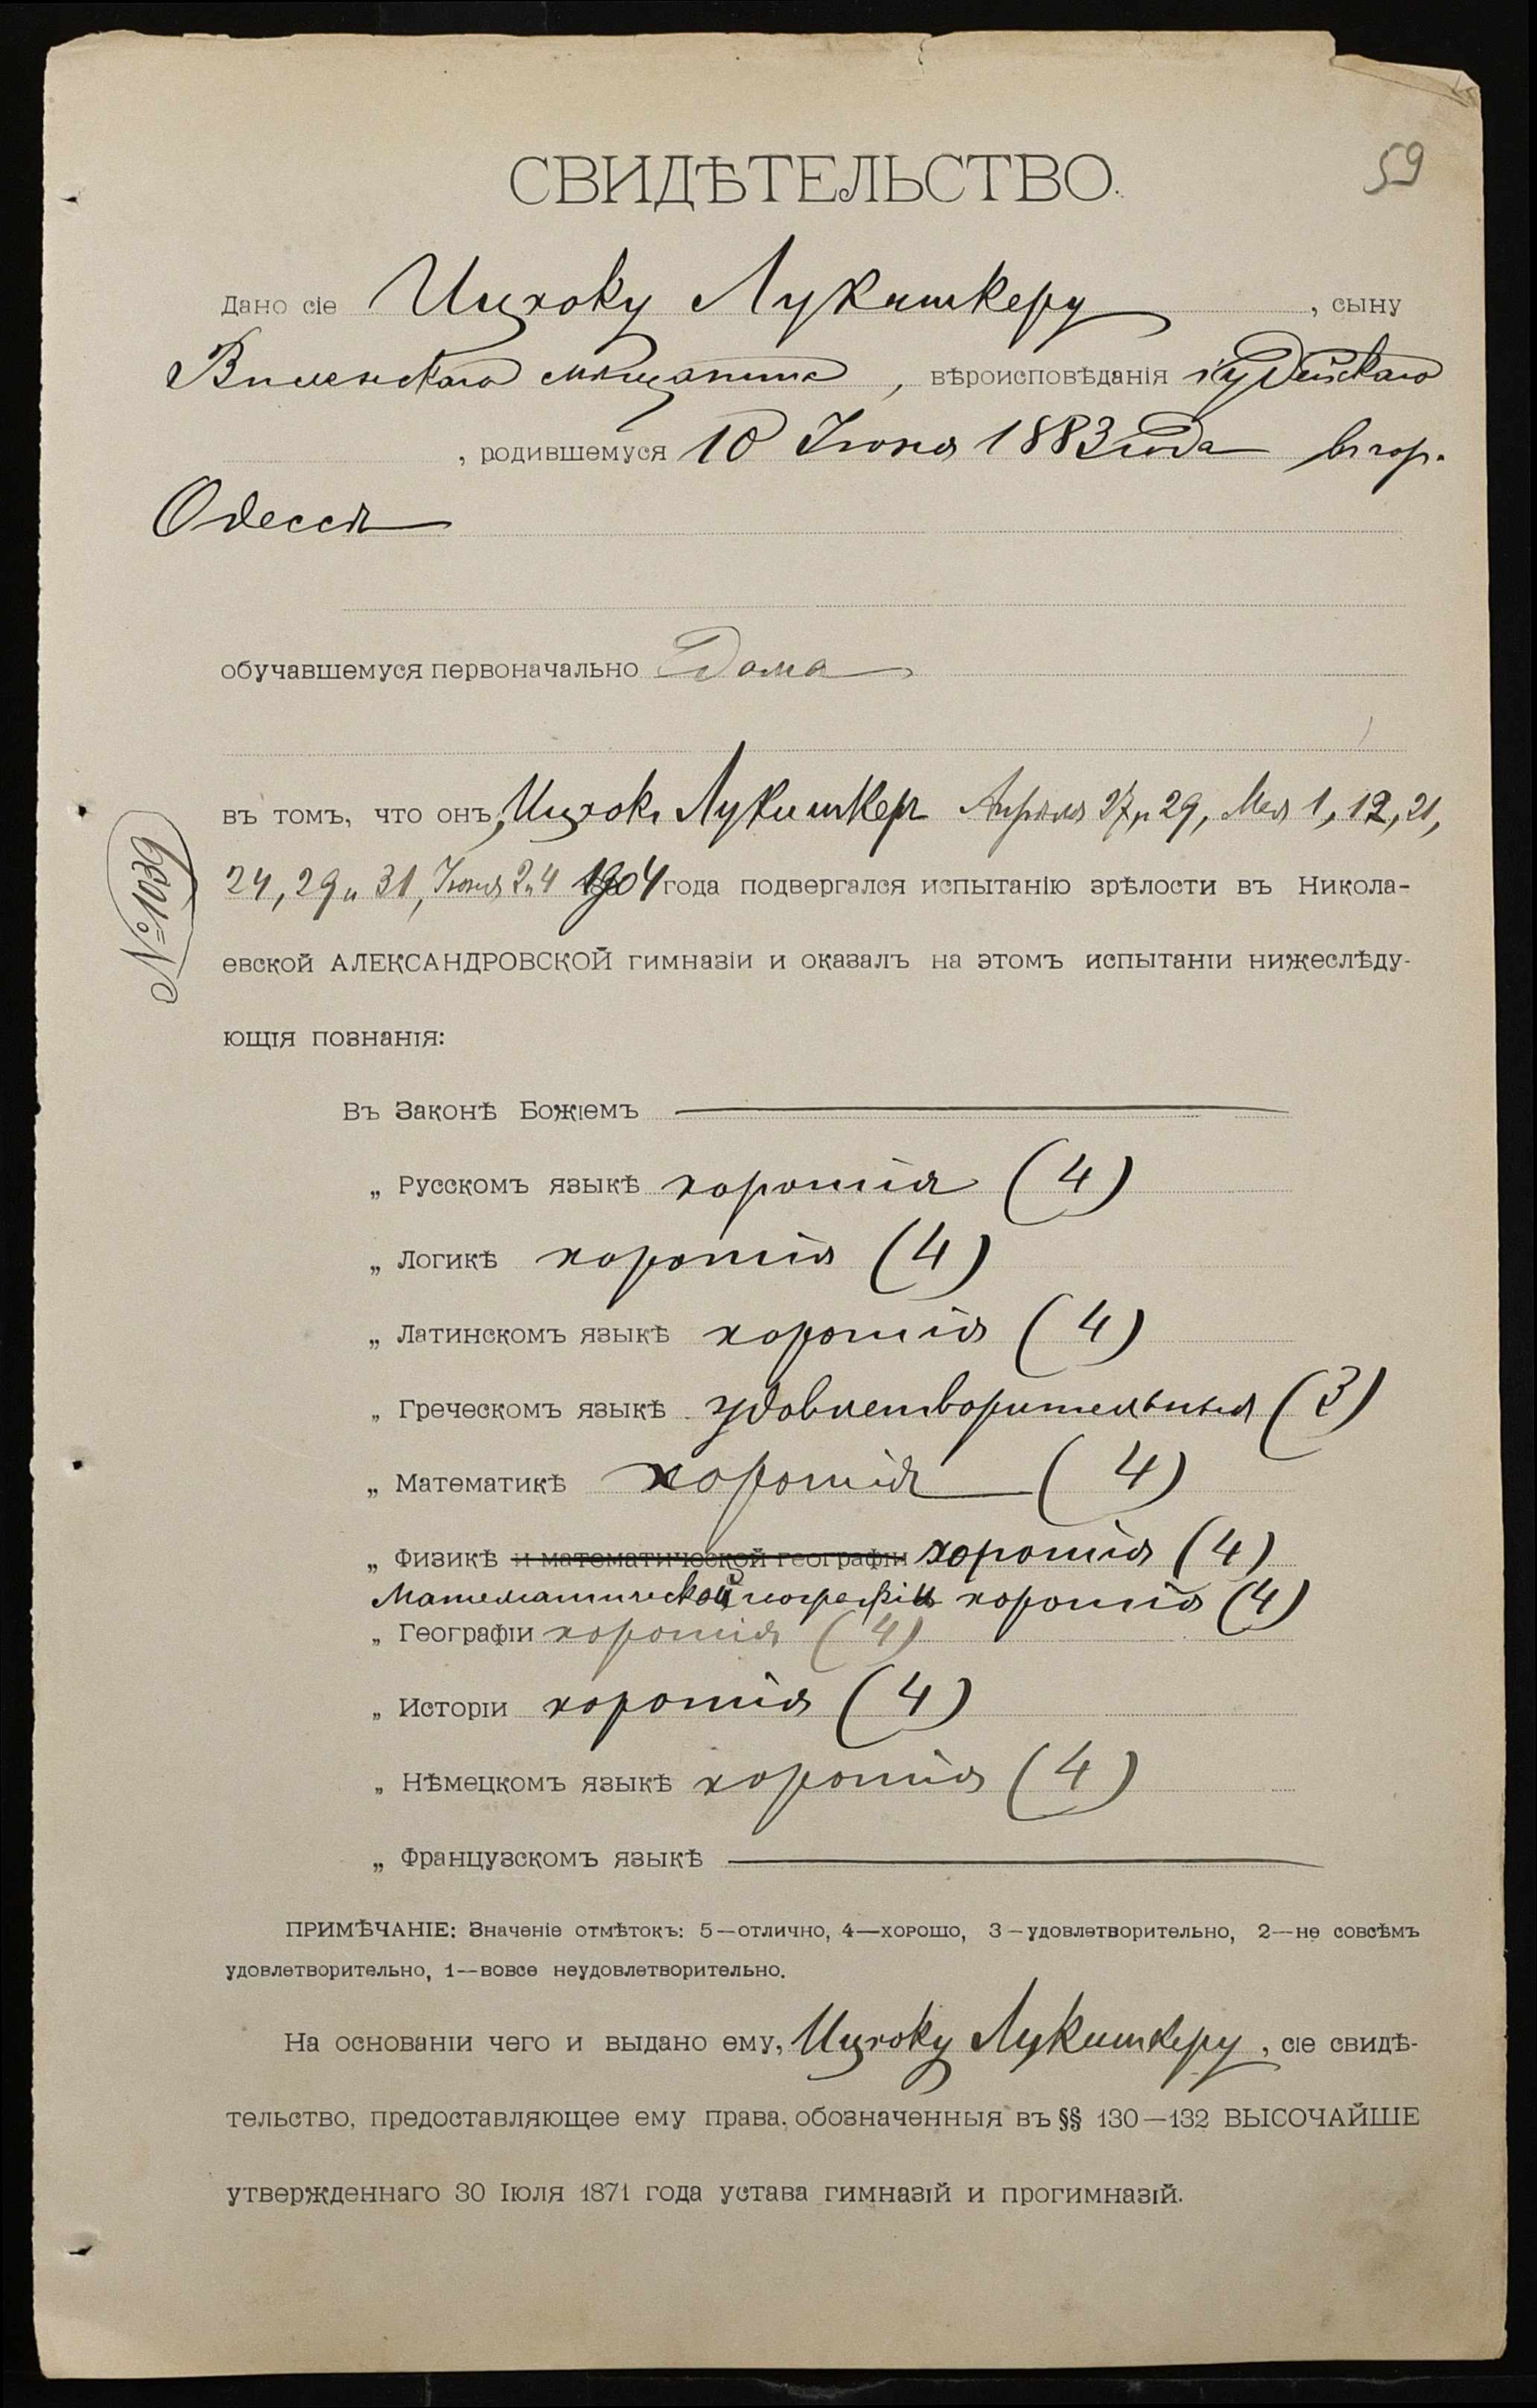 59
СВИДѢТЕЛЬСТВО.
Дано сіе Ицхоку Лукишкеру, сыну
Виленскаго мѣщанина, вѣроисповѣданія іудейскаго
, родившемуся 10 Іюня 1883 года въ гор.
Одессѣ
обучавшемуся первоначально Дома
въ томъ, что онъ, Ицхокъ Лукишкеръ Апрѣля 27 и 29, Мая 1, 12, 21,
24, 29 и 31, Іюня 2 и 4 1904 года подвергался испытанію зрѣлости въ Никола-
евской АЛЕКСАНДРОВСКОЙ гимназіи и оказалъ на этомъ испытаніи нижеслѣду-
ющія познанія:
№ 1039
Въ Законѣ Божіемъ
„ Русскомъ языкѣ хорошія (4)
„ Логикѣ хорошія (4)
„ Латинскомъ языкѣ хорошія (4)
„ Греческомъ языкѣ удовлетворительныя (3)
„ Математикѣ хорошія (4)
„ Физикѣ и математической географіи хорошія (4)
Математической географіи хорошія (4)
„ Географіи хорошія (4)
„ Исторіи хорошія (4)
„ Нѣмецкомъ языкѣ хорошія (4)
„ Французскомъ языкѣ
ПРИМѢЧАНІЕ: Значеніе отмѣтокъ: 5—отлично, 4—хорошо, 3—удовлетворительно, 2—не совсѣмъ
удовлетворительно, 1—вовсе неудовлетворительно.
На основаніи чего и выдано ему, Ицхоку Лукишкеру, сіе свидѣ-
тельство, предоставляющее ему права, обозначенныя въ §§ 130—132 ВЫСОЧАЙШЕ
утвержденнаго 30 Іюля 1871 года устава гимназій и прогимназій.